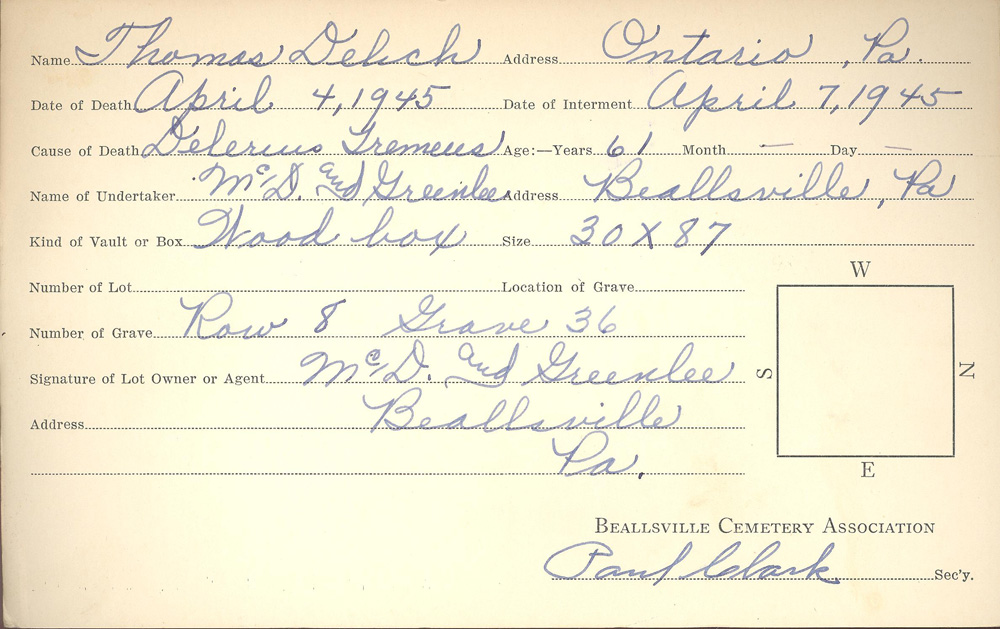 Name Thomas Delich Address Ontario, Pa.
Date of Death April 4, 1945 Date of Interment April 7, 1945
Cause of Death Delerius Tremeus Age:—Years 61 Month — Day —
Name of Undertaker McD. and Greenlee Address Beallsville, Pa
Kind of Vault or Box Wood box Size 30 X 87
Number of Lot Location of Grave
Number of Grave Row 8 Grave 36
Signature of Lot Owner or Agent McD. and Greenlee
Address Beallsville
Pa.
W
S
N
E
BEALLSVILLE CEMETERY ASSOCIATION
Paul Clark Sec'y.